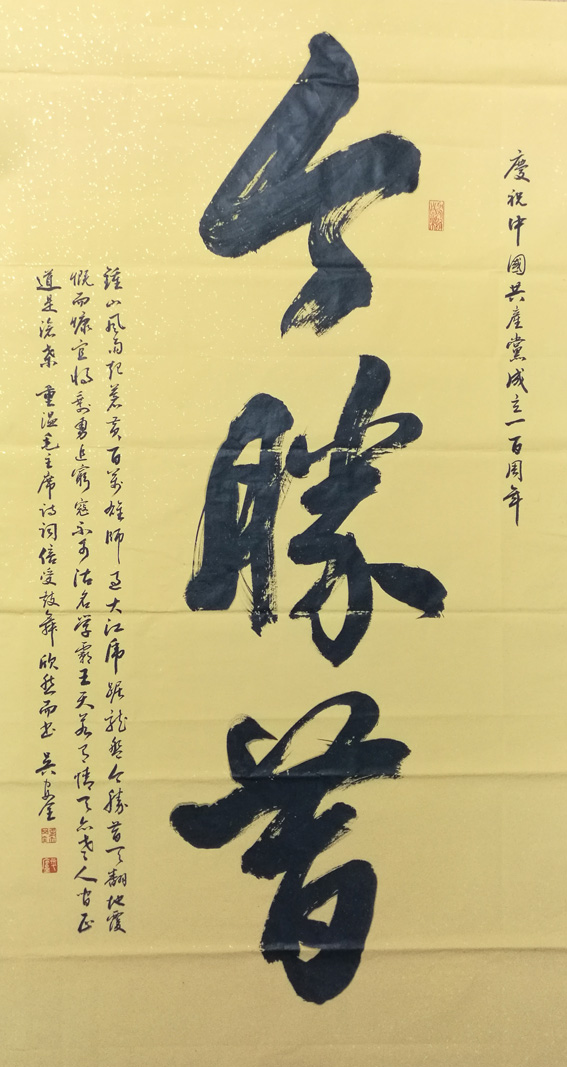 慶祝中國共產黨成立一百周年
今勝昔
鍾山风雨起蒼黄百萬雄師过大江虎踞龍盤今勝昔天翻地覆
慨而慷宜將剩勇追窮寇不可沽名学霸王天若有情天亦老人间正
道是滄桑 重温毛主席诗词倍受鼓舞欣然而书 吴